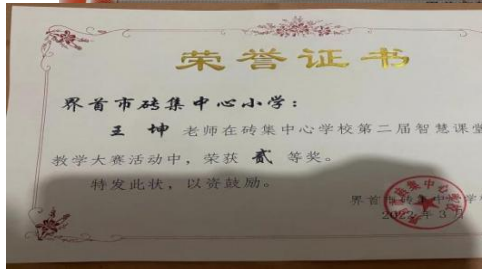 荣誉证书
界首市砖集中心小学：
王坤 老师在砖集中心学校第二届智慧课堂
教学大赛活动中，荣获 贰 等奖。
特发此状，以资鼓励。
界首市砖集中心学
2022年3月